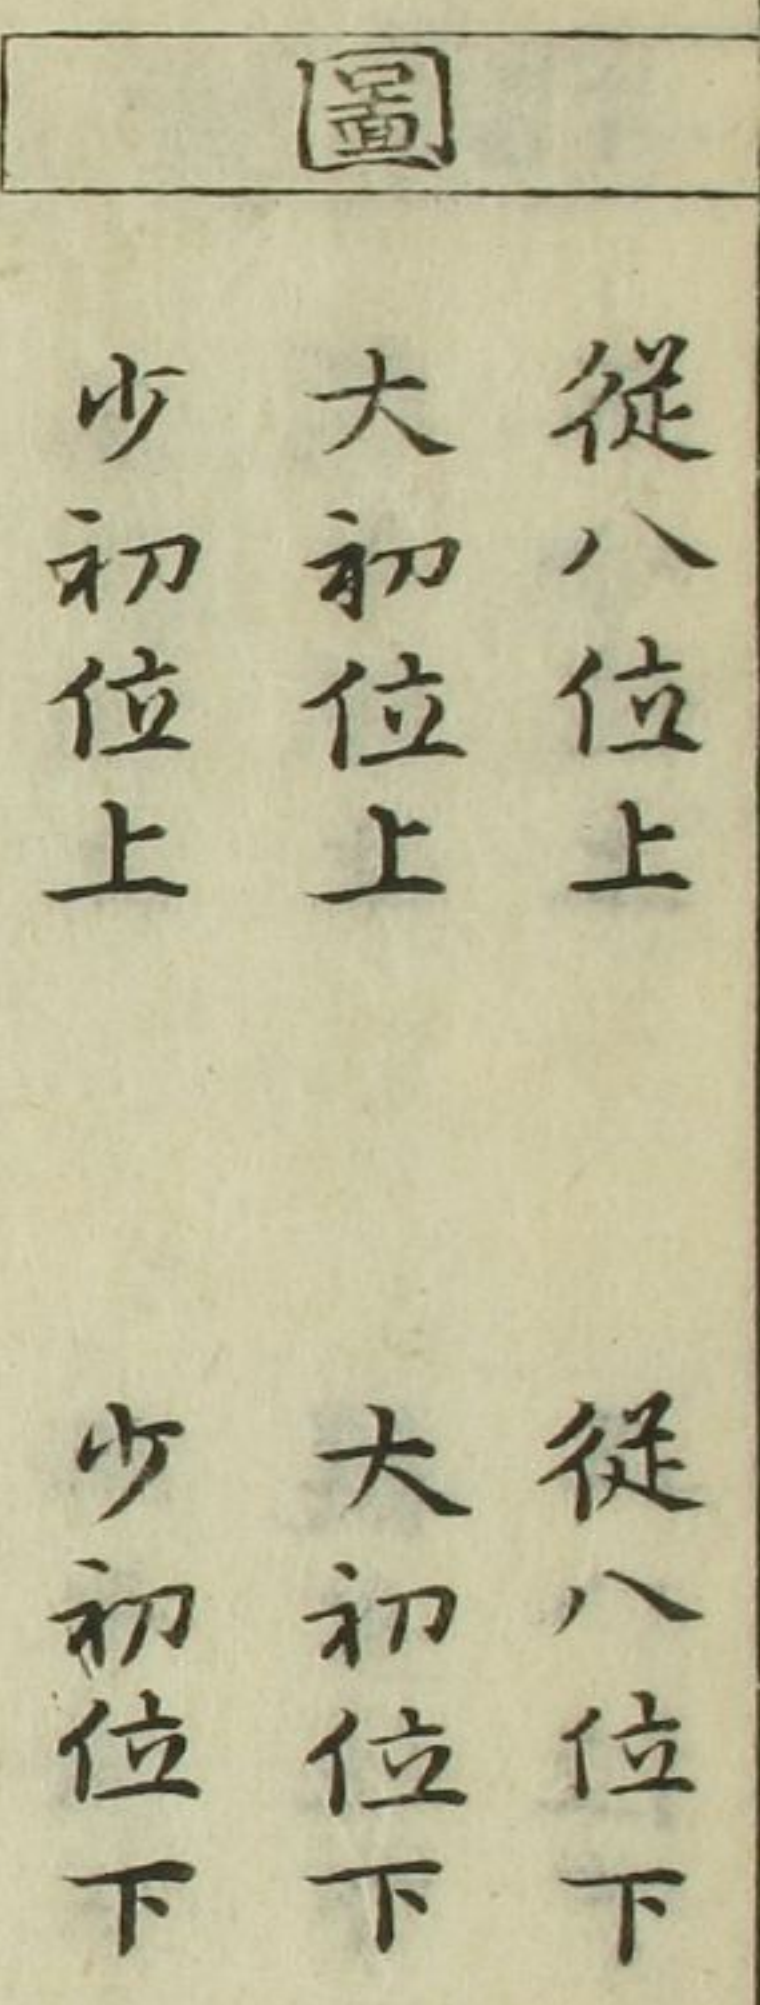 圖
從八位上
從八位下
大初位上
大初位下
少初位上
少初位下